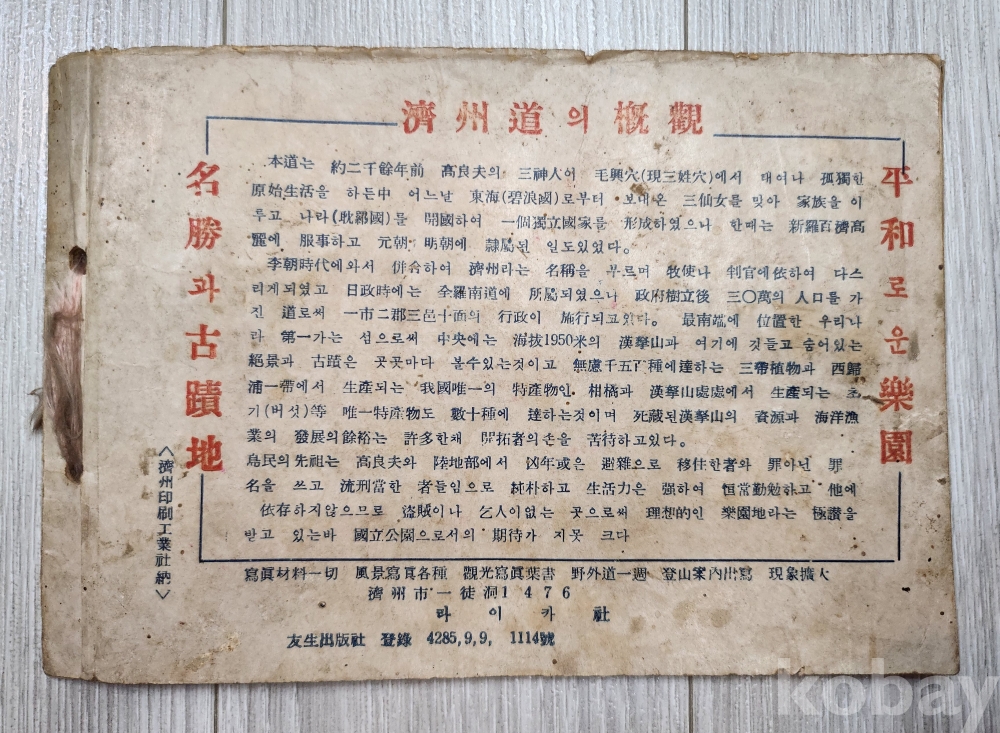 濟州道의 槪觀
名勝과 古蹟地
平和로운 樂園
本道는 約二千餘年前 髙良夫의 三神人이 毛興穴(現三姓穴)에서 태여나 孤獨한
原始生活을 하든中 어느날 東海(碧浪國)로부터 보내온 三仙女를 맞아 家族을 이
루고 나라(耽羅國)를 開國하여 一個獨立國家를 形成하였으나 한때는 新羅百濟髙
麗에 服事하고 元朝 明朝에 隷屬된 일도있었다.
李朝時代에와서 倂合하여 濟州라는 名稱을 부르며 牧使나 判官에依하여 다스
리게되였고 日政時에는 全羅南道에 所屬되였으나 政府樹立後 三〇萬의 人口를 가
진 道로써 一市二郡三邑十面의 行政이 施行되고있다. 最南端에 位置한 우리나
라 第一가는 섬으로써 中央에는 海拔1950米의 漢拏山과 여기에 것들고 숨어있는
絕景과 古蹟은 곳곳마다 볼수있는것이고 無慮千五百種에達하는 三帶植物과 西歸
浦一帶에서 生產되는 我國唯一의 特產物인 柑橘과 漢拏山處處에서 生產되는 초
기(버섯)等 唯一特產物도 數十種에 達하는것이며 死藏된漢拏山의 資源과 海洋漁
業의 發展의餘裕는 許多한채 開拓者의손을 苦待하고있다.
島民의先祖는 髙良夫와 陸地部에서 凶年或은 避難으로 移住한者와 罪아닌 罪
名을 쓰고 流刑當한 者들임으로 純朴하고 生活力은 強하여 恒常勤勉하고 他에
依存하지않으므로 盜賊이나 乞人이없는 곳으로써 理想的인 樂園地라는 極讃을
받고 있는바 國立公園으로서의 期待가 자못 크다
寫眞材料一切 風景寫眞各種 觀光寫眞葉書 野外道一週 登山案內出寫 現象擴大
濟州市一徒洞1476
라이카社
友生出版社 登錄 4285,9,9, 1114號
〈濟州印刷工業社納〉
kobay